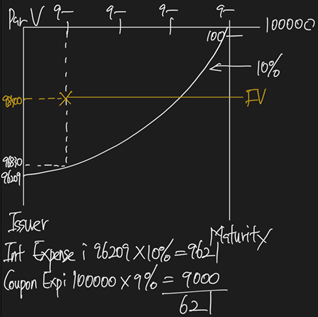 Par V 9– 9– 9– 9– 10000C
100
10%
98400 FV
96830
96209
Issuer
Maturity
Int Expense i 96209 × 10% = 9621
Coupon Expi 100000 × 9% = 9000
621